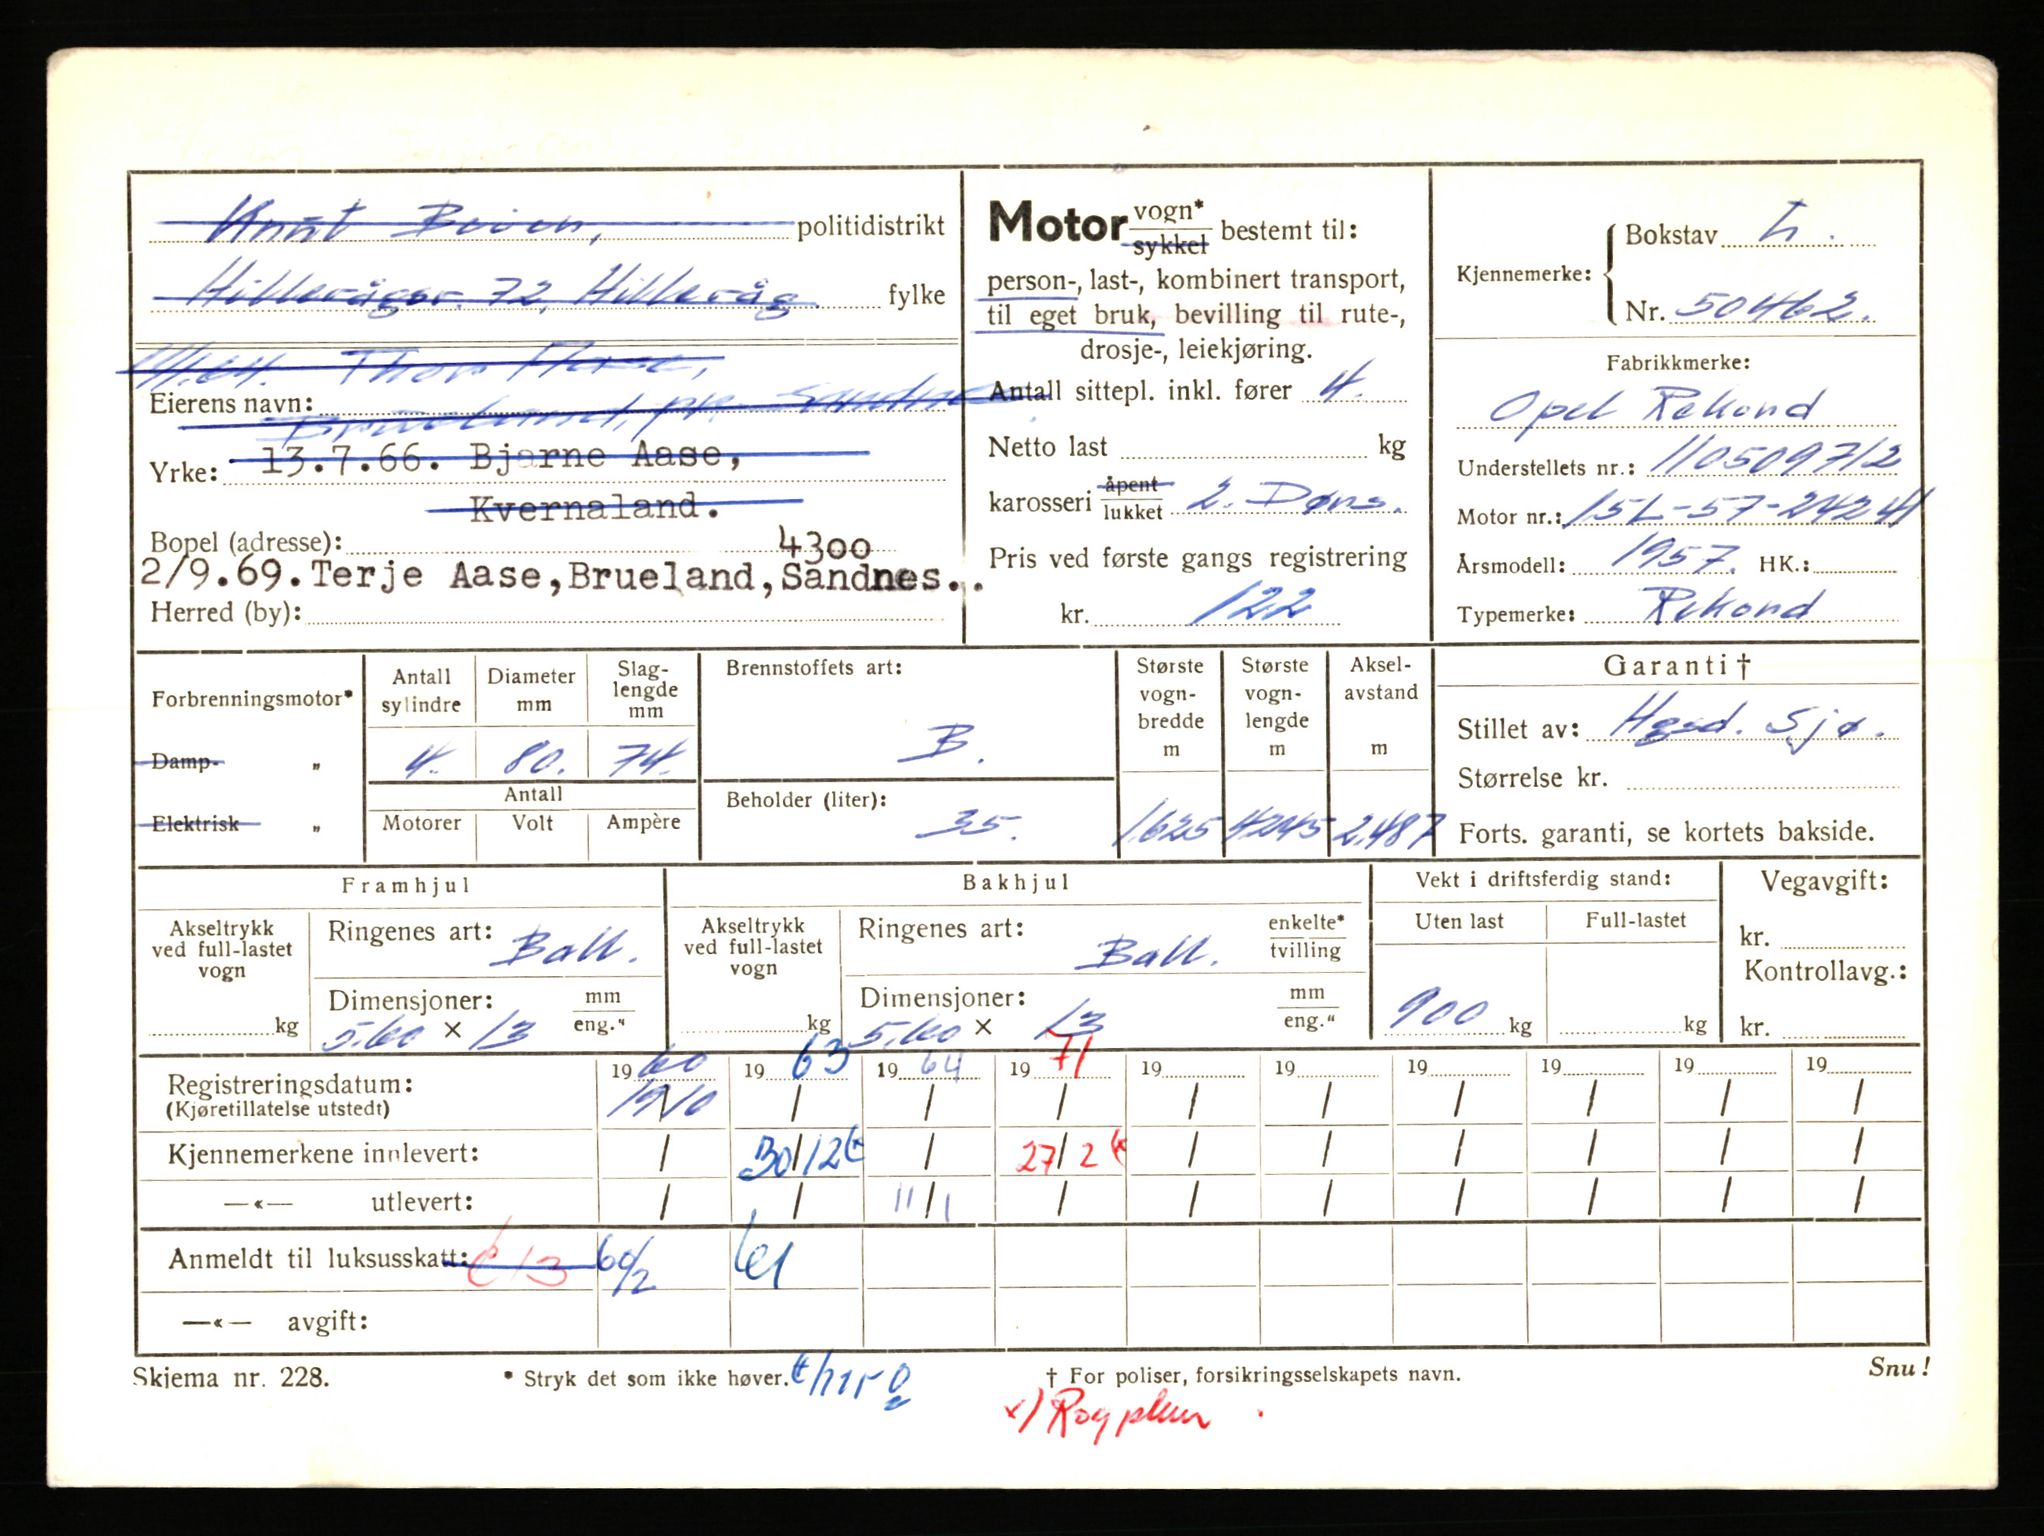 Knut politidistrikt
72, Hillevåg. fylke
Thor Aase,
Eierens navn:
13.7.66. Bjarne Aase,
Yrke:
Kvernaland.
Bopel (adresse): 4300
2/9.69.Terje Aase,Brueland,Sandnes..
Herred (by):
Motor vogn* sykkel bestemt til:
person-, last-, kombinert transport,
til eget bruk, bevilling til rute-,
drosje-, leiekjøring.
Antall sittepl. inkl. fører 4.
Netto last kg
karosseri åpent lukket 2. Dørs.
Pris ved første gangs registrering
kr. 122
Kjennemerke: Bokstav L.
Nr. 50462.
Fabrikkmerke:
Opel Rekond
Understellets nr.: 110509712
Motor nr.: 15L-57-24241
Årsmodell: 1957. HK.:
Typemerke: Rekond
Forbrenningsmotor*
Damp- „
Elektrisk „
Antall sylindre 4.
Diameter mm 80.
Slag-lengde mm 74.
Antall
Motorer Volt Ampère
Brennstoffets art:
B.
Beholder (liter):
35.
Største vogn-bredde m 1.625
Største vogn-lengde m 4245
Aksel-avstand m 2.487
Garanti †
Stillet av: Hgsd. Sjø.
Størrelse kr.
Forts. garanti, se kortets bakside.
Framhjul
Akseltrykk ved full-lastet vogn
kg
Ringenes art: Ball.
Dimensjoner: mm eng."
5.60 × 13
Bakhjul
Akseltrykk ved full-lastet vogn
kg
Ringenes art: Ball. enkelte* tvilling
Dimensjoner: mm eng."
5.60 × 13
Vekt i driftsferdig stand:
Uten last Full-lastet
900 kg kg
Vegavgift:
kr.
Kontrollavg.:
kr.
Registreringsdatum: 1960 1963 1964 1971 19 19 19 19 19 19
(Kjøretillatelse utstedt) 19/10 / / / / / / / / /
Kjennemerkene innlevert: / 30/12 / 27/2 / / / / / /
—«— utlevert: / / 11/1 / / / / / / /
Anmeldt til luksusskatt: 60/2 61
—«— avgift:
Skjema nr. 228.
* Stryk det som ikke høver.
† For poliser, forsikringsselskapets navn.
Snu!
x)